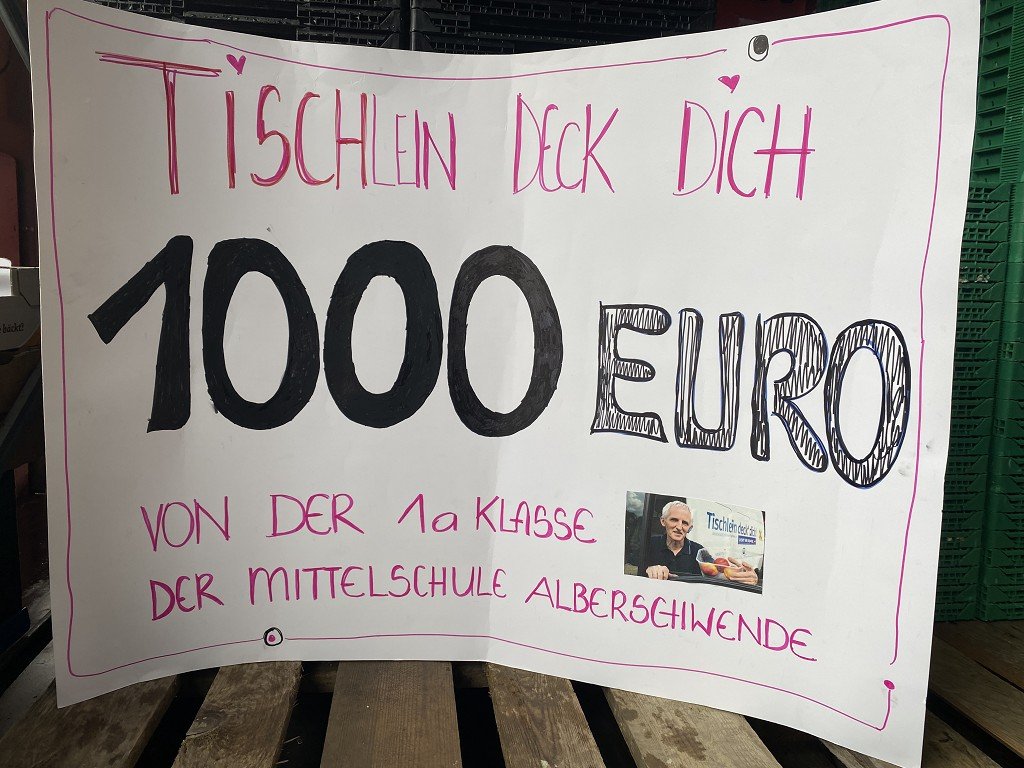 TISCHLEIN DECK DICH
1000 EURO
VON DER 1a KLASSE
DER MITTELSCHULE ALBERSCHWENDE
Tischlein deck dich
bäckt!